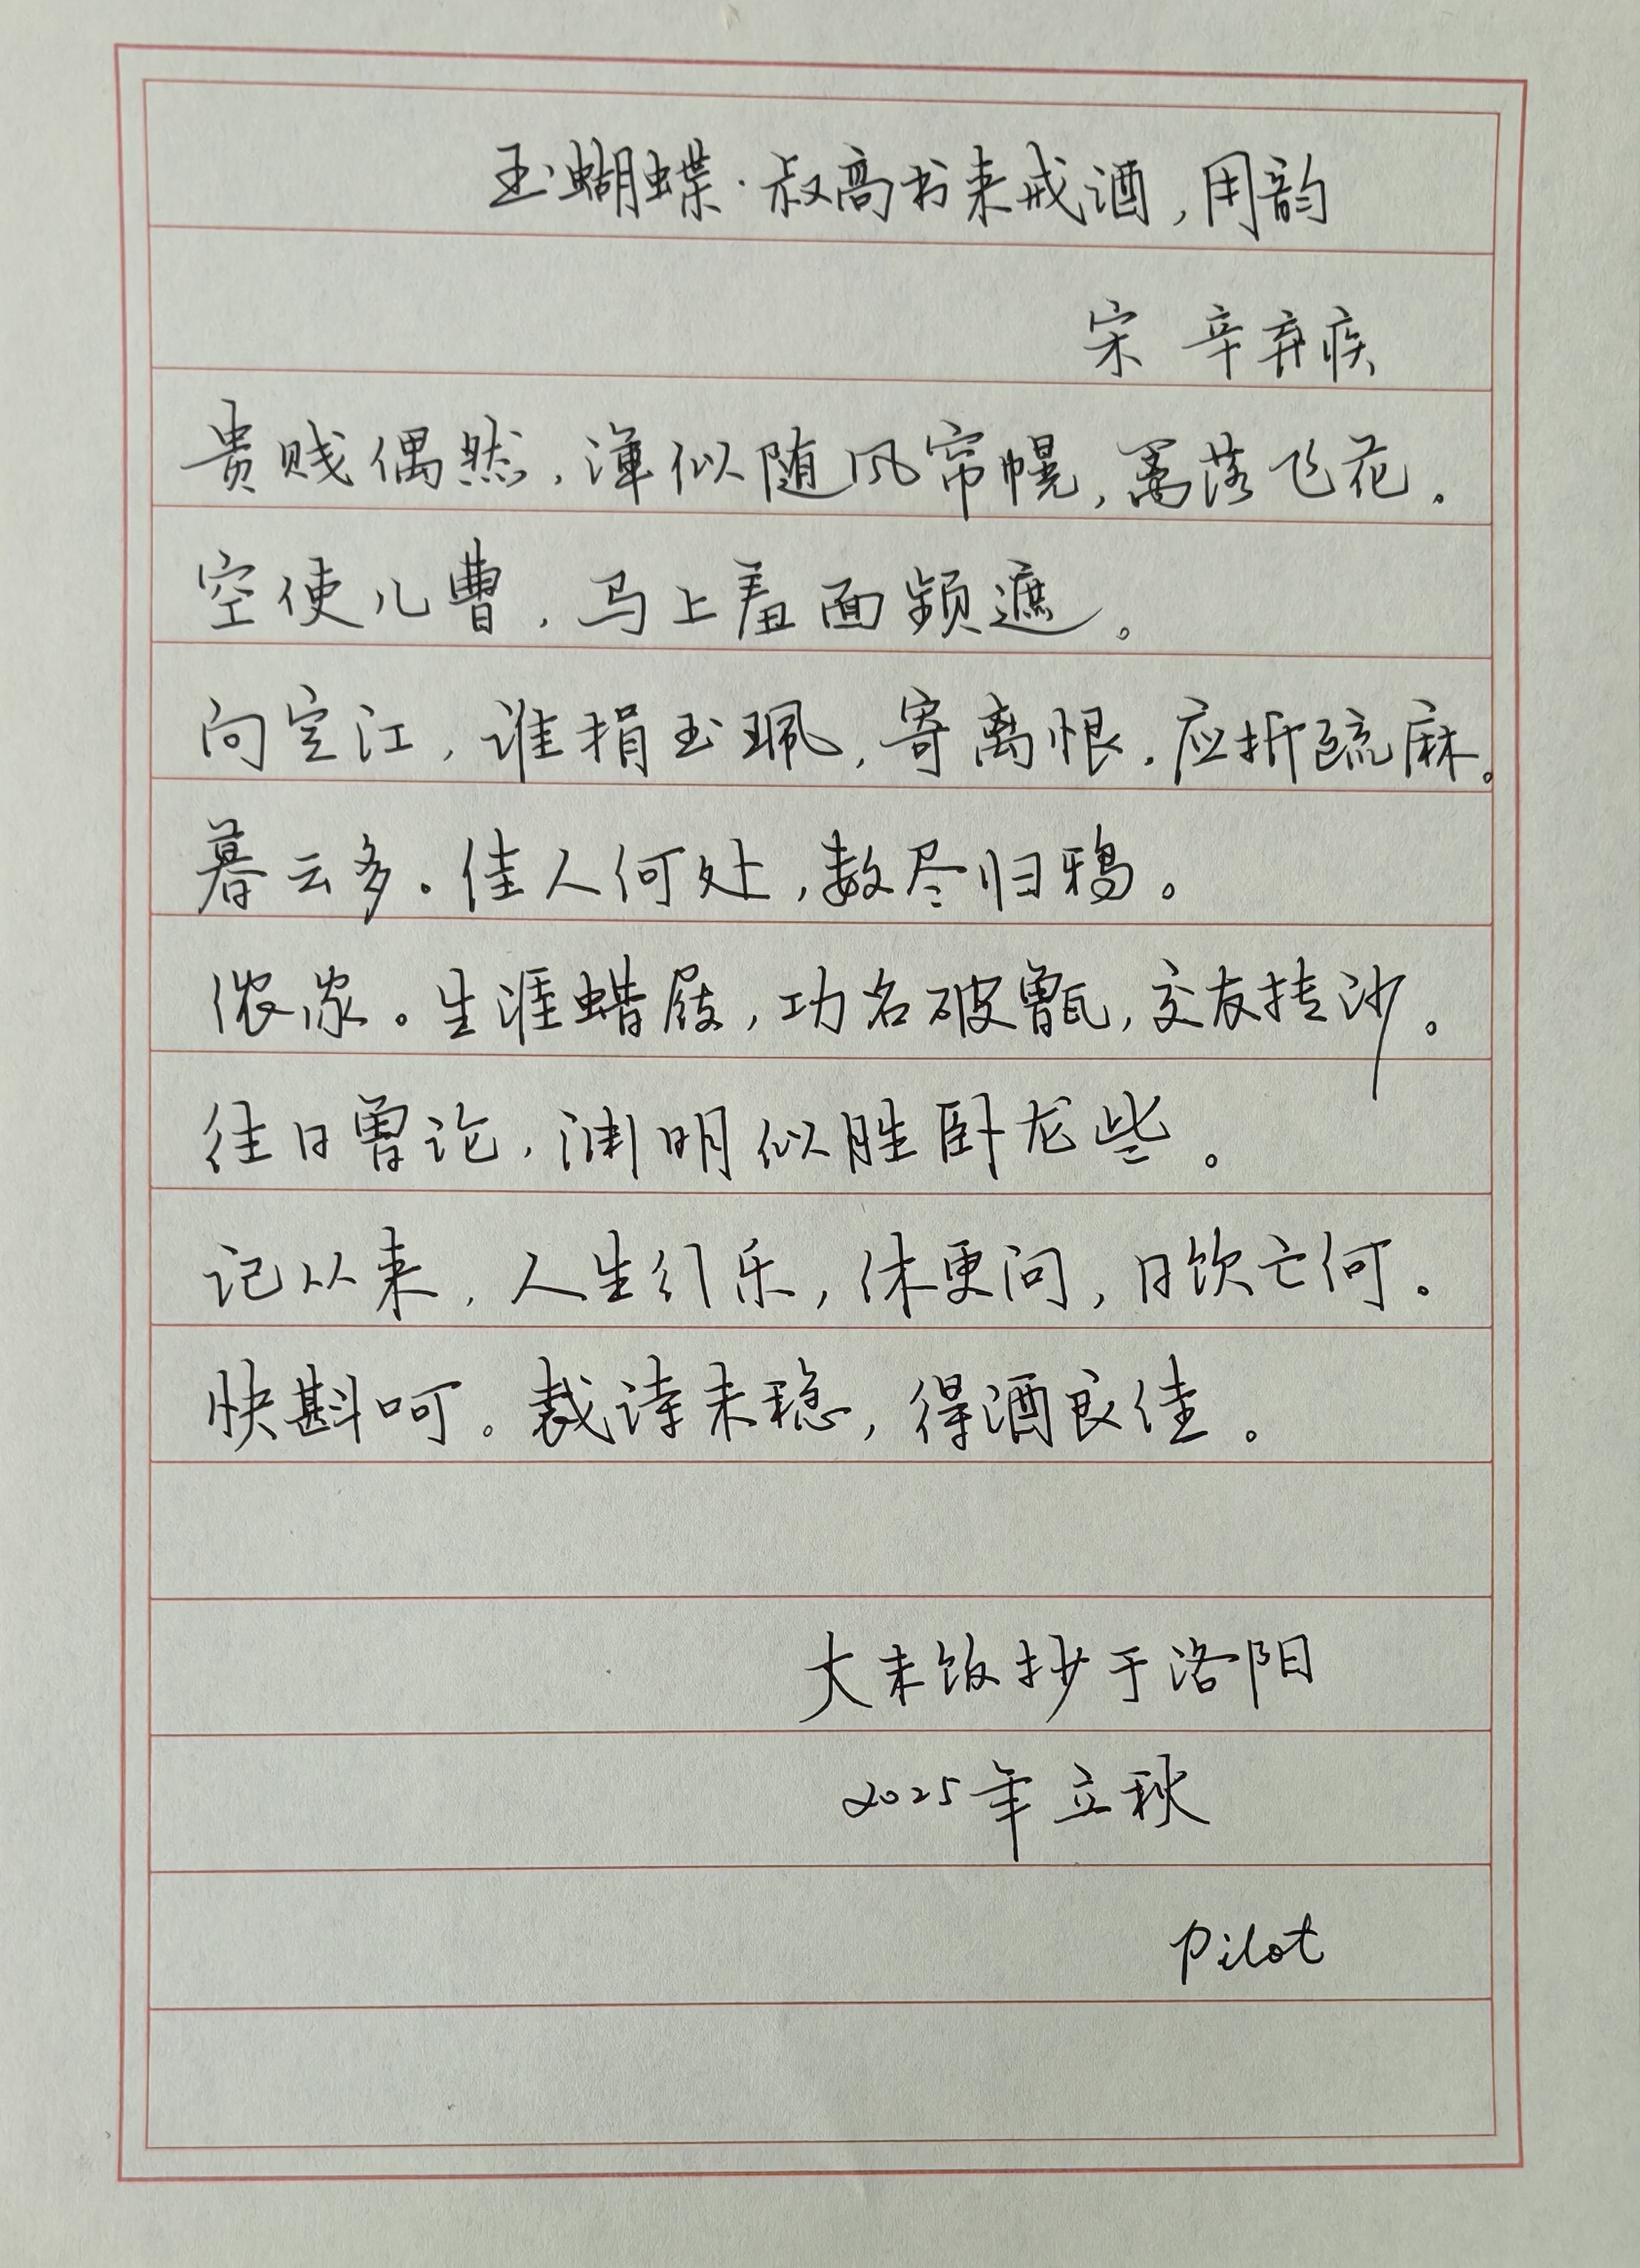 玉蝴蝶·叔高书来戒酒,用韵
宋 辛弃疾
贵贱偶然,浑似随风帘幌,篱落飞花。
空使儿曹,马上羞面频遮。
向空江,谁捐玉珮,寄离恨,应折疏麻。
暮云多。佳人何处,数尽归鸦。
侬家。生涯蜡屐,功名破甑,交友抟沙。
往日曾论,渊明似胜卧龙些。
记从来,人生行乐,休更问,日饮亡何。
快斟呵。裁诗未稳,得酒良佳。
大末饭抄于洛阳
2025年立秋
Pilot